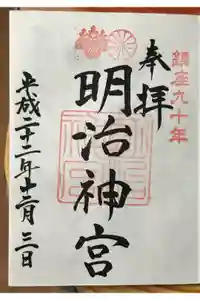 鎮座九十年
奉拝
明治神宮
平成二十二年十二月三日